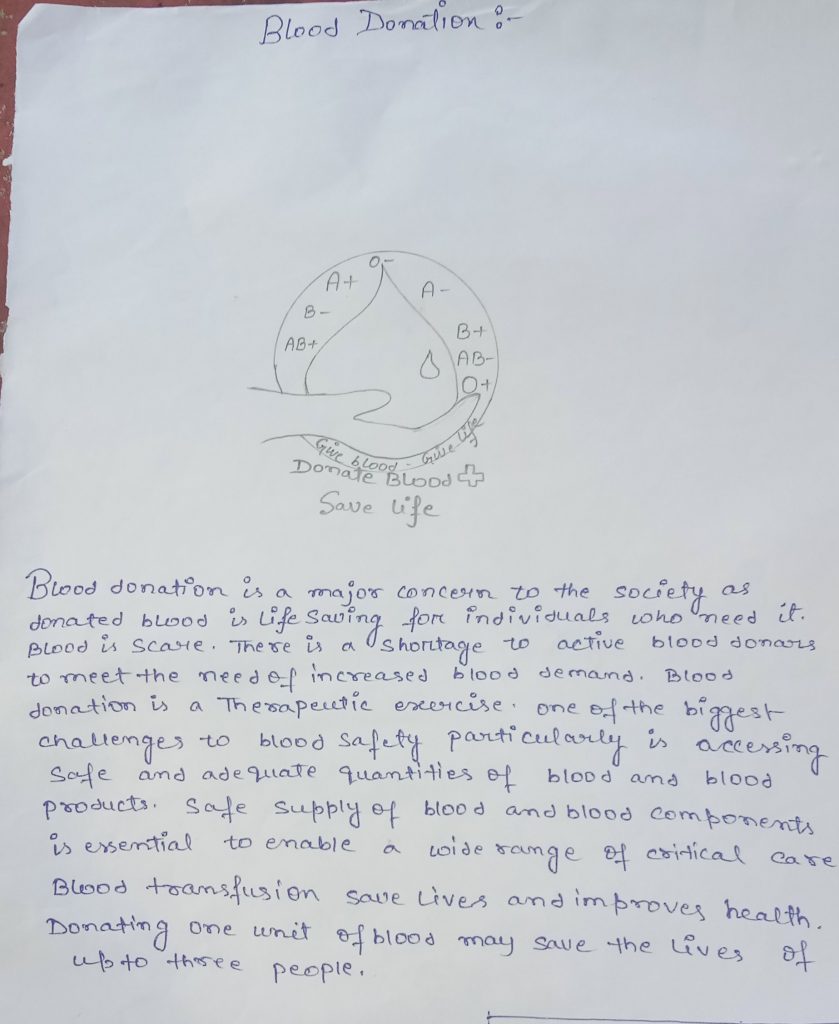 Blood Donation :-
O-
A+
A-
B-
B+
AB+
AB-
O+
Give blood - Give life
Donate Blood
Save life
Blood donation is a major concern to the society as
donated blood is life saving for individuals who need it.
Blood is scare. There is a shortage to active blood donars
to meet the need of increased blood demand. Blood
donation is a Therapeutic exercise. one of the biggest
challenges to blood safety particularly is accessing
safe and adequate quantities of blood and blood
products. Safe supply of blood and blood components
is essential to enable a wide range of critical care
Blood transfusion save lives and improves health.
Donating one unit of blood may save the lives of
upto three people.